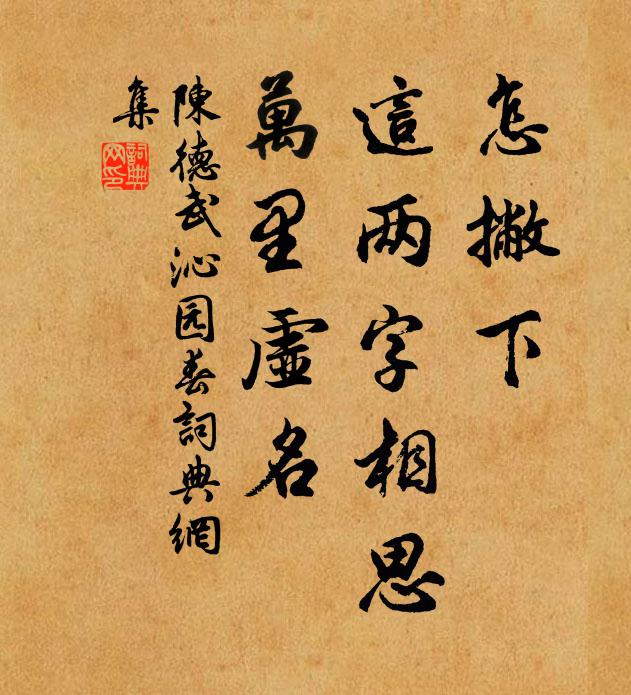 怎撇下
這两字相思
萬里虛名
陳德武沁园春詞典網
集
詞典網印